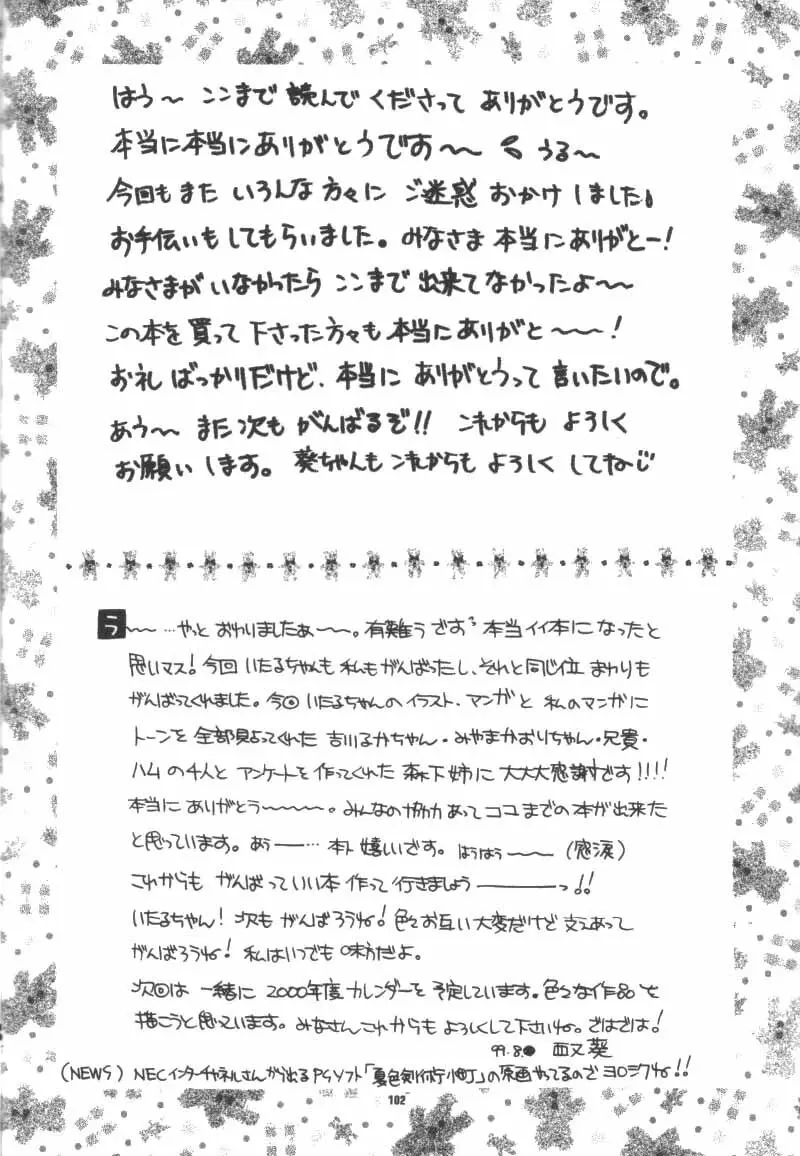 はう〜 ここまで 読んで くださって ありがとうです。
本当に本当にありがとうですお〜〜 うる〜
今回もまた いろんな方々に ご迷惑 おかけしました
お手伝いもしてもらいました。みなさま 本当にありがとー!
みなさまが いなかったら ここまで 出来てなかったよ〜〜
この本を買って下さった方々も本当にありがと〜〜!
お礼 ばっかりだけど、本当に ありがとうって 言いたいので。
あう〜 また次も がんばるぞ!! これからも よろしく
お願いします。葵ちゃんも これからも よろしく してね
う〜〜…やっと おわりましたぁ〜〜。有難うざお 本当イイ本になったと
思いマス!今回 いたるちゃんも 私もがんばったし、それと同じ位 まわりも
がんばってくれました。今回 いたるちゃんのイラスト、マンガと 私のマンガに
トーンを 全部貼ってくれた 吉川るかちゃん・みやまかおりちゃん・兄貴・
ハムの4人と アンケートを作ってくれた 森下姉に 大大大感謝です!!!!
本当に ありがとう〜〜〜〜。みんなの協力あって ココまでの本が出来た
と思っています。あぅ――… 本ト 嬉しいざす。はうはう〜〜 (感涙)
これからも がんばって いい本 作って 行きましょう―――っ!!
いたるちゃん!次も がんばろうね!色々お互い大変だけど 支えあって
がんばろうね!私はいつでも 味方だよ。
次回は 一緒に 2000年度カレンダーを予定しています。色々な作品を
描こうと思っています。みなさんこれからも よろしくして下さいね。ではでは!
99.8. 葵
(NEWS) NECインターチャネルさんから出るPSソフト「夏色剣術小町」の原画やってるので ヨロシクね!!
102